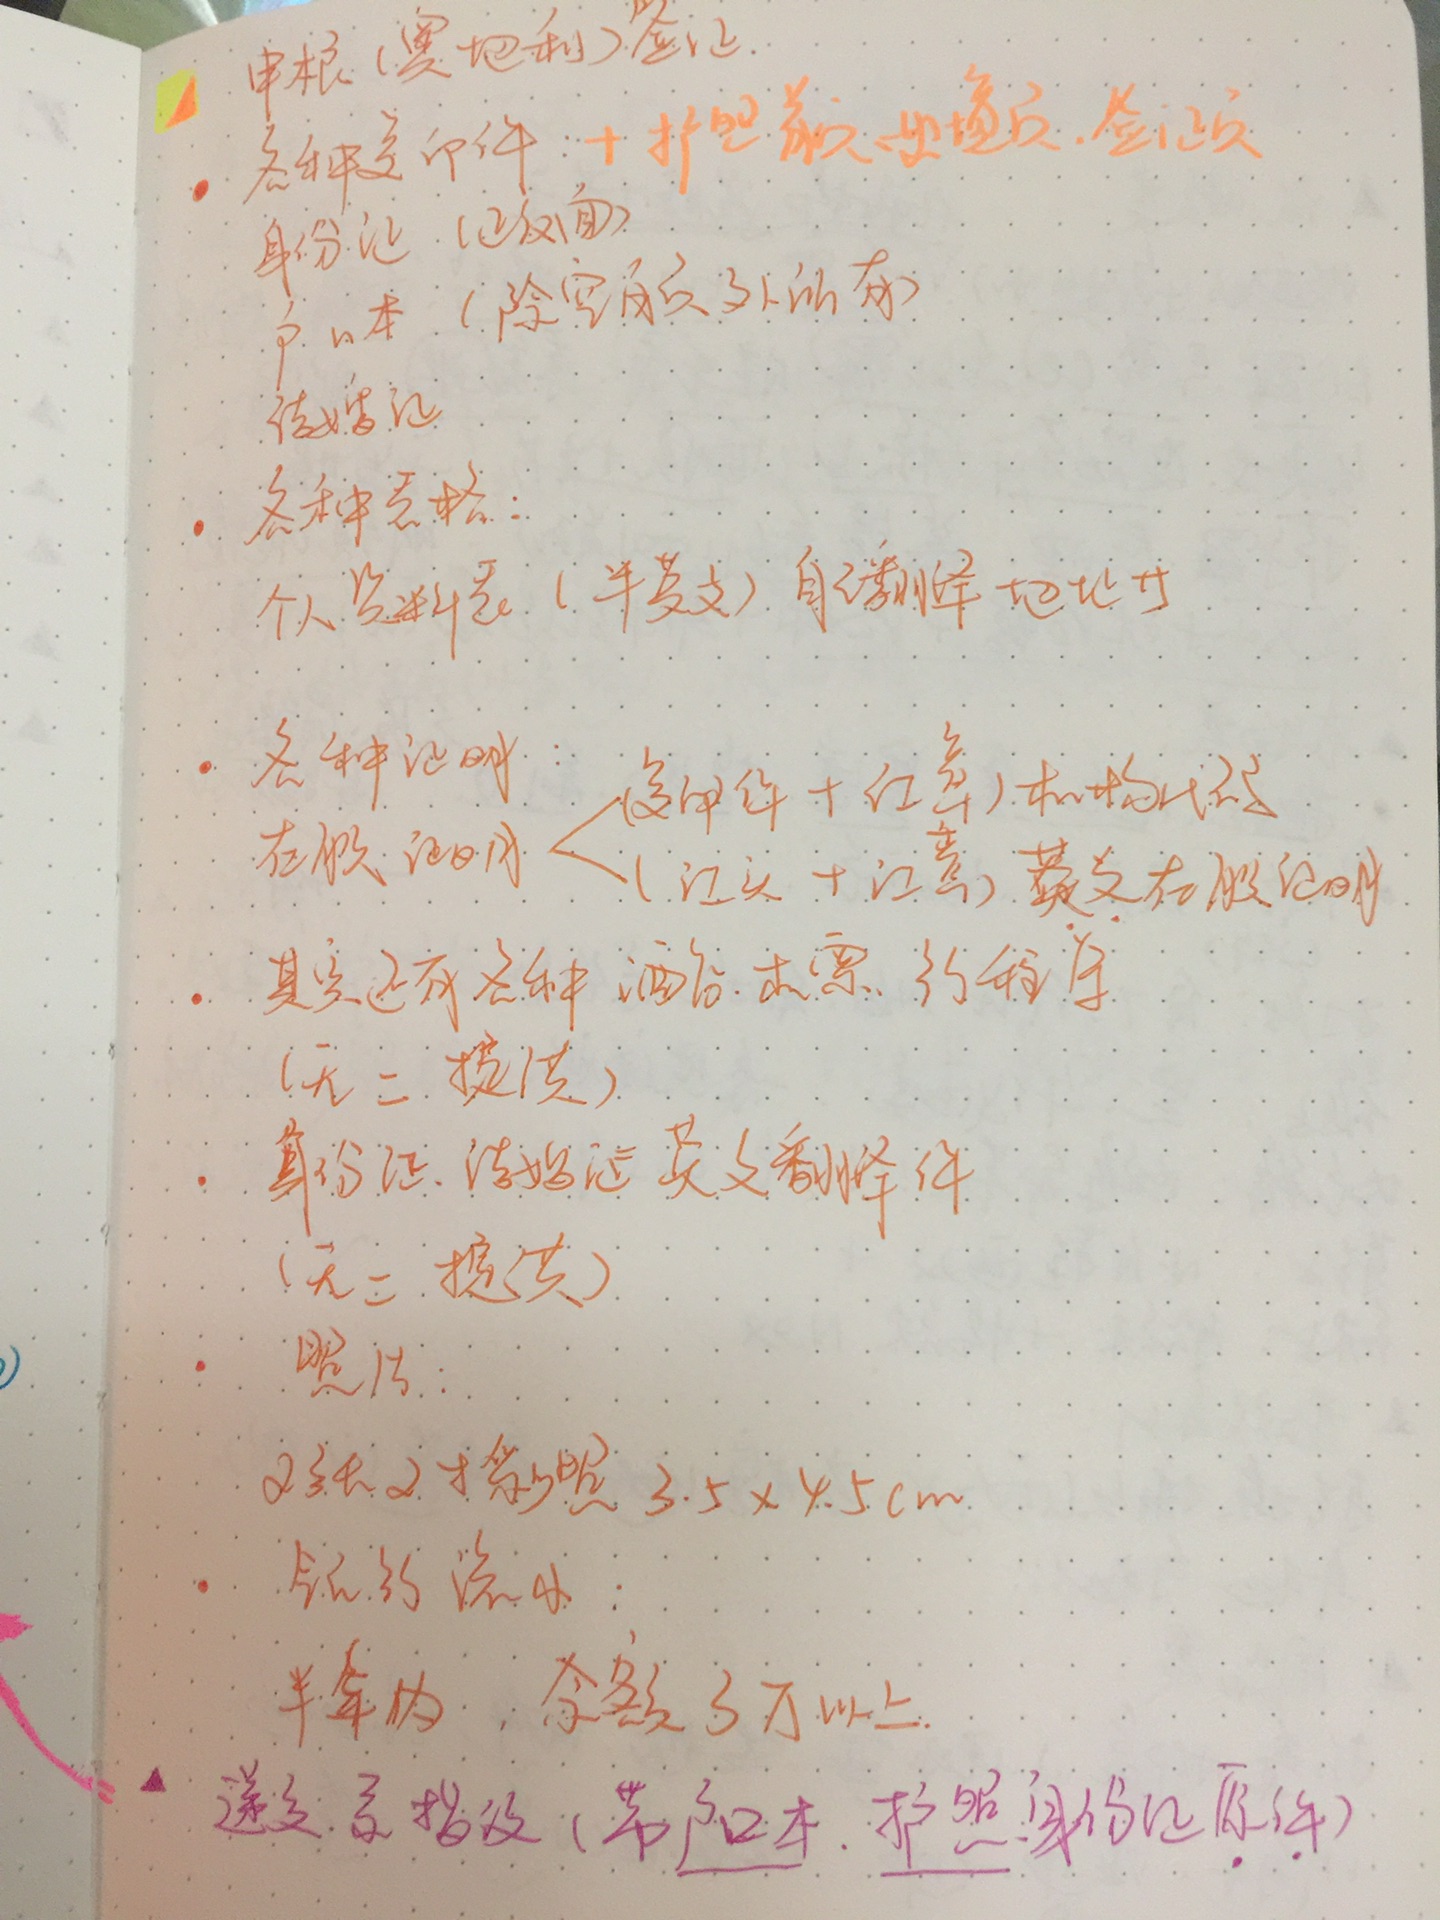 申根(奥地利)签证
各种复印件 + 护照首页、增页、签证页
身份证 (正反面)
户口本 (除空白页外所有)
结婚证
各种表格:
个人资料表 (半英文) 自己翻译地址
各种证明:
(复印件 + 红章) 机构代码
在职证明
(红头 + 红章) 英文在职证明
其实还有各种酒店、机票、行程单
(无二提供)
身份证、结婚证英文翻译件
(无二提供)
照片:
2张2寸彩照 3.5×4.5cm
银行流水:
半年内, 余额3万以上.
递交录指纹 (带户口本、护照、身份证原件)